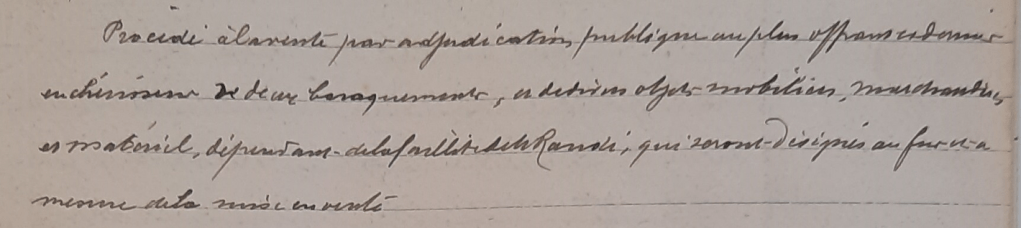 Procédé à la vente par adjudication publique au plus offrant et dernier
enchérisseur de deux baraquements, et de divers objets mobiliers, marchandises
et matériel, dépendant de la faillite de M. Randi, qui seront désignés au fur et à
mesure de la mise en vente